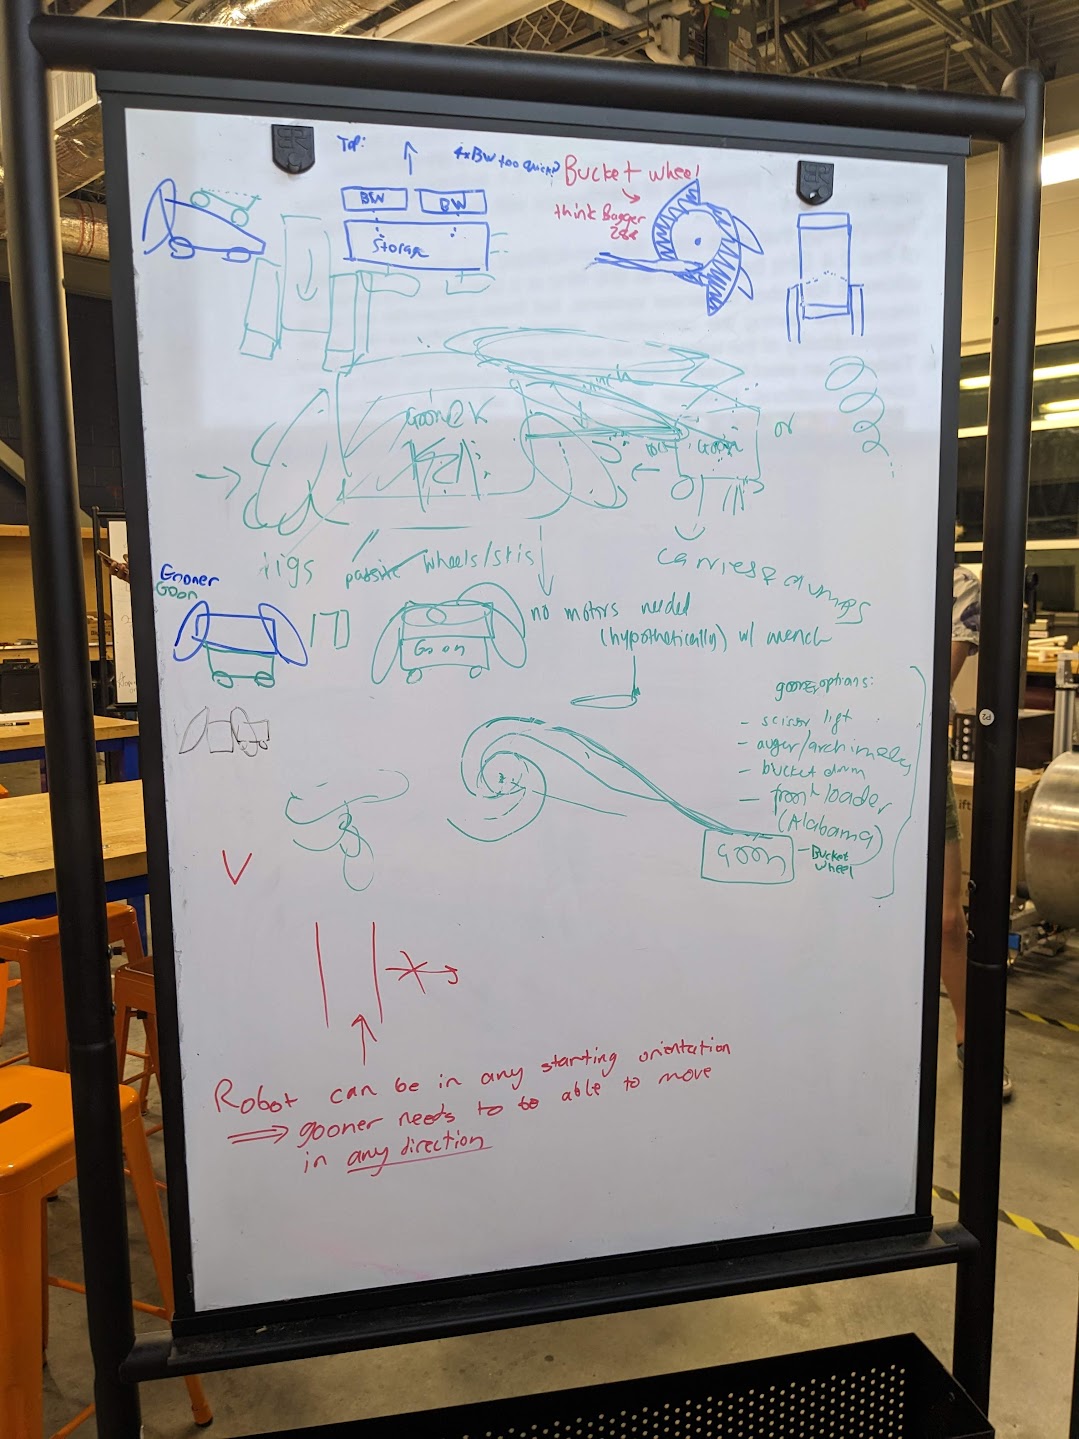 Top:
4xBW too quick?
Bucket wheel
think Bagger
288
BW
BW
Storage
Goon 2K
or
Goon
digs
passive wheels/skis
carries & dumps
Gooner
Goon
Goon
no motors needed
(hypothetically) w/ wench
options:
- scissor lift
- auger/archimedes
- bucket drum
- front loader
(Alabama)
- Bucket
wheel
GOON
V
Robot can be in any starting orientation
⟹ gooner needs to be able to move
in any direction